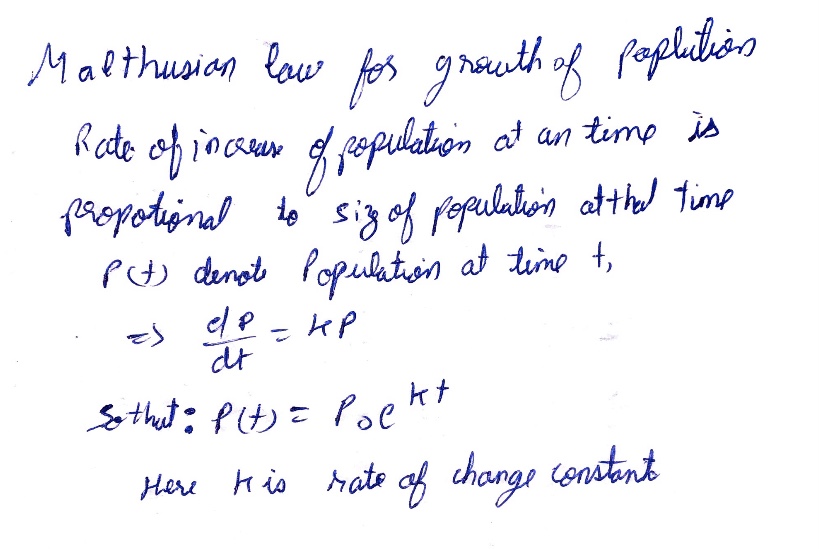 Malthusian law for growth of poplution
Rate of increase of population at an time is
propotional to siz of population at that time
P(t) denote Population at time t,
=> dP/dt = kP
So that: P(t) = P₀e^kt
Here k is rate of change constant